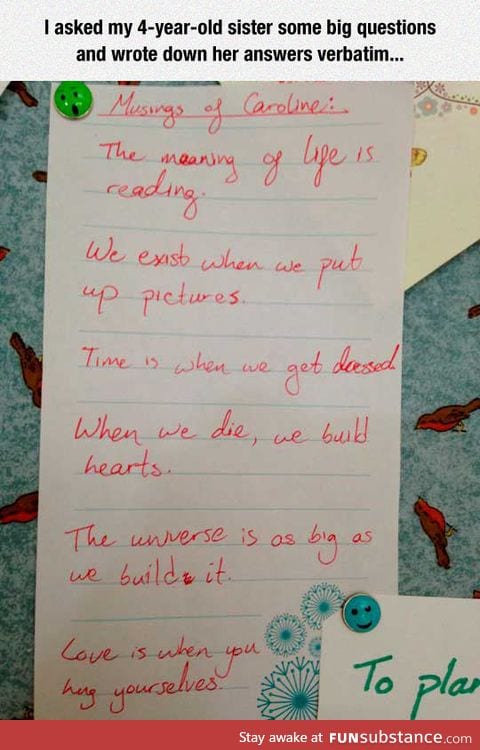 I asked my 4-year-old sister some big questions
and wrote down her answers verbatim...
Musings of Caroline:
The meaning of life is
reading.
We exist when we put
up pictures.
Time is when we get dressed
When we die, we build
hearts.
The universe is as big as
we build it.
Love is when you
hug yourselves.
To plan
Stay awake at FUNsubstance.com